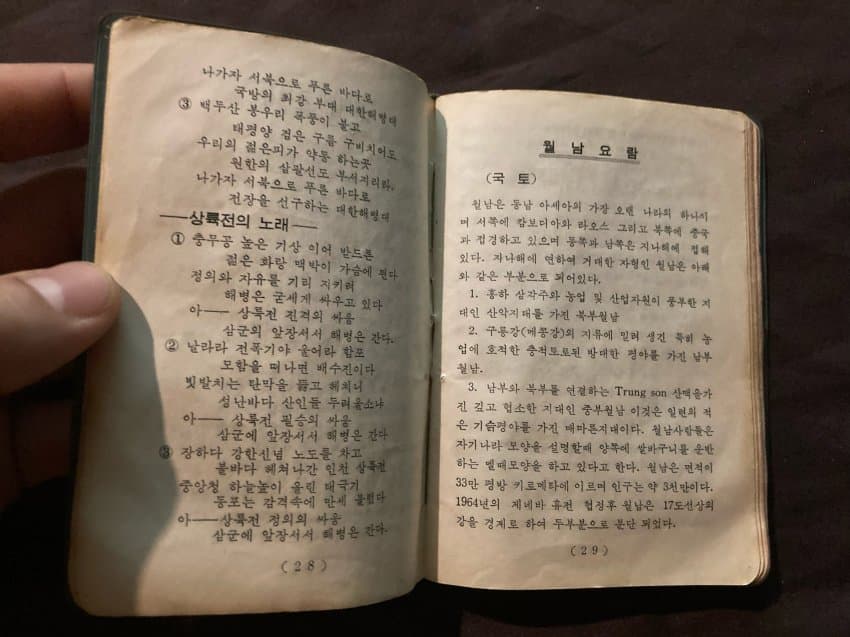 나가자 서북으로 푸른 바다로
국방의 최강 부대 대한해병대
③ 백두산 봉우리 폭풍이 불고
태평양 검은 구름 구비치어도
우리의 젊은피가 약동 하는곳
원한의 삼팔선도 부서지리라,
나가자 서북으로 푸른 바다로
전장을 선구하는 대한해병대
──상륙전의 노래──
① 충무공 높은 기상 이어 받드른
젊은 화랑 맥박이 가슴에 뛴다
정의와 자유를 기리 지키려
해병은 굳세게 싸우고 있다
아── 상륙전 전격의 싸움
삼군의 앞장서서 해병은 간다.
② 날라라 전폭기야 울어라 함포
모함을 떠나면 배수진이다
빗발치는 탄막을 뚫고 헤치니
성난바다 산인들 두려울소냐
아── 상륙전 필승의 싸움
삼군에 앞장서서 해병은 간다
③ 장하다 강한신념 노도를 차고
불바다 헤쳐나간 인천 상륙전
중앙청 하늘높이 올린 태극기
동포는 감격속에 만세 불렀다
아──상륙전 정의의 싸움
삼군에 앞장서서 해병은 간다.
(28)
월남요람
(국 토)
월남은 동남 아세아의 가장 오랜 나라의 하나이
며 서쪽에 캄보디아와 라오스 그리고 북쪽에 중국
과 접경하고 있으며 동쪽과 남쪽은 지나해에 접해
있다. 지나해에 연하여 거대한 자형인 월남은 아래
와 같은 부분으로 되어있다.
1. 홍하 삼각주와 농업 및 산업자원이 풍부한 지
대인 산악지대를 가진 북부월남
2. 구룡강(메콩강)의 지류에 밀려 생긴 특히 농
업에 호적한 충적토로된 방대한 평야를 가진 남부
월남.
3. 남부와 북부를 연결하는 Trung son 산맥을가
진 깊고 협소한 지대인 중부월남 이것은 일련의 적
은 기슭평야를 가진 메마른지대이다. 월남사람들은
자기나라 모양을 설명할때 양쪽에 쌀바구니를 운반
하는 멜때모양을 하고 있다고 한다. 월남은 면적이
33만 평방 키로메타에 이르며 인구는 약 3천만이다.
1964년의 제네바 휴전 협정후 월남은 17도선상의
강을 경계로 하여 두부분으로 분단 되었다.
(29)